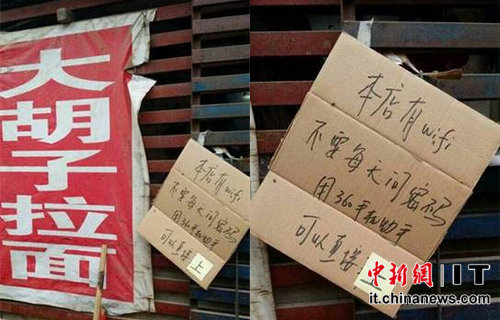 大胡子拉面
本店有wifi
不要每天问密码
用360手机助手
可以直接上
本店有wifi
不要每天问密码
用360手机助手
可以直接
中新網 IT
it.chinanews.com